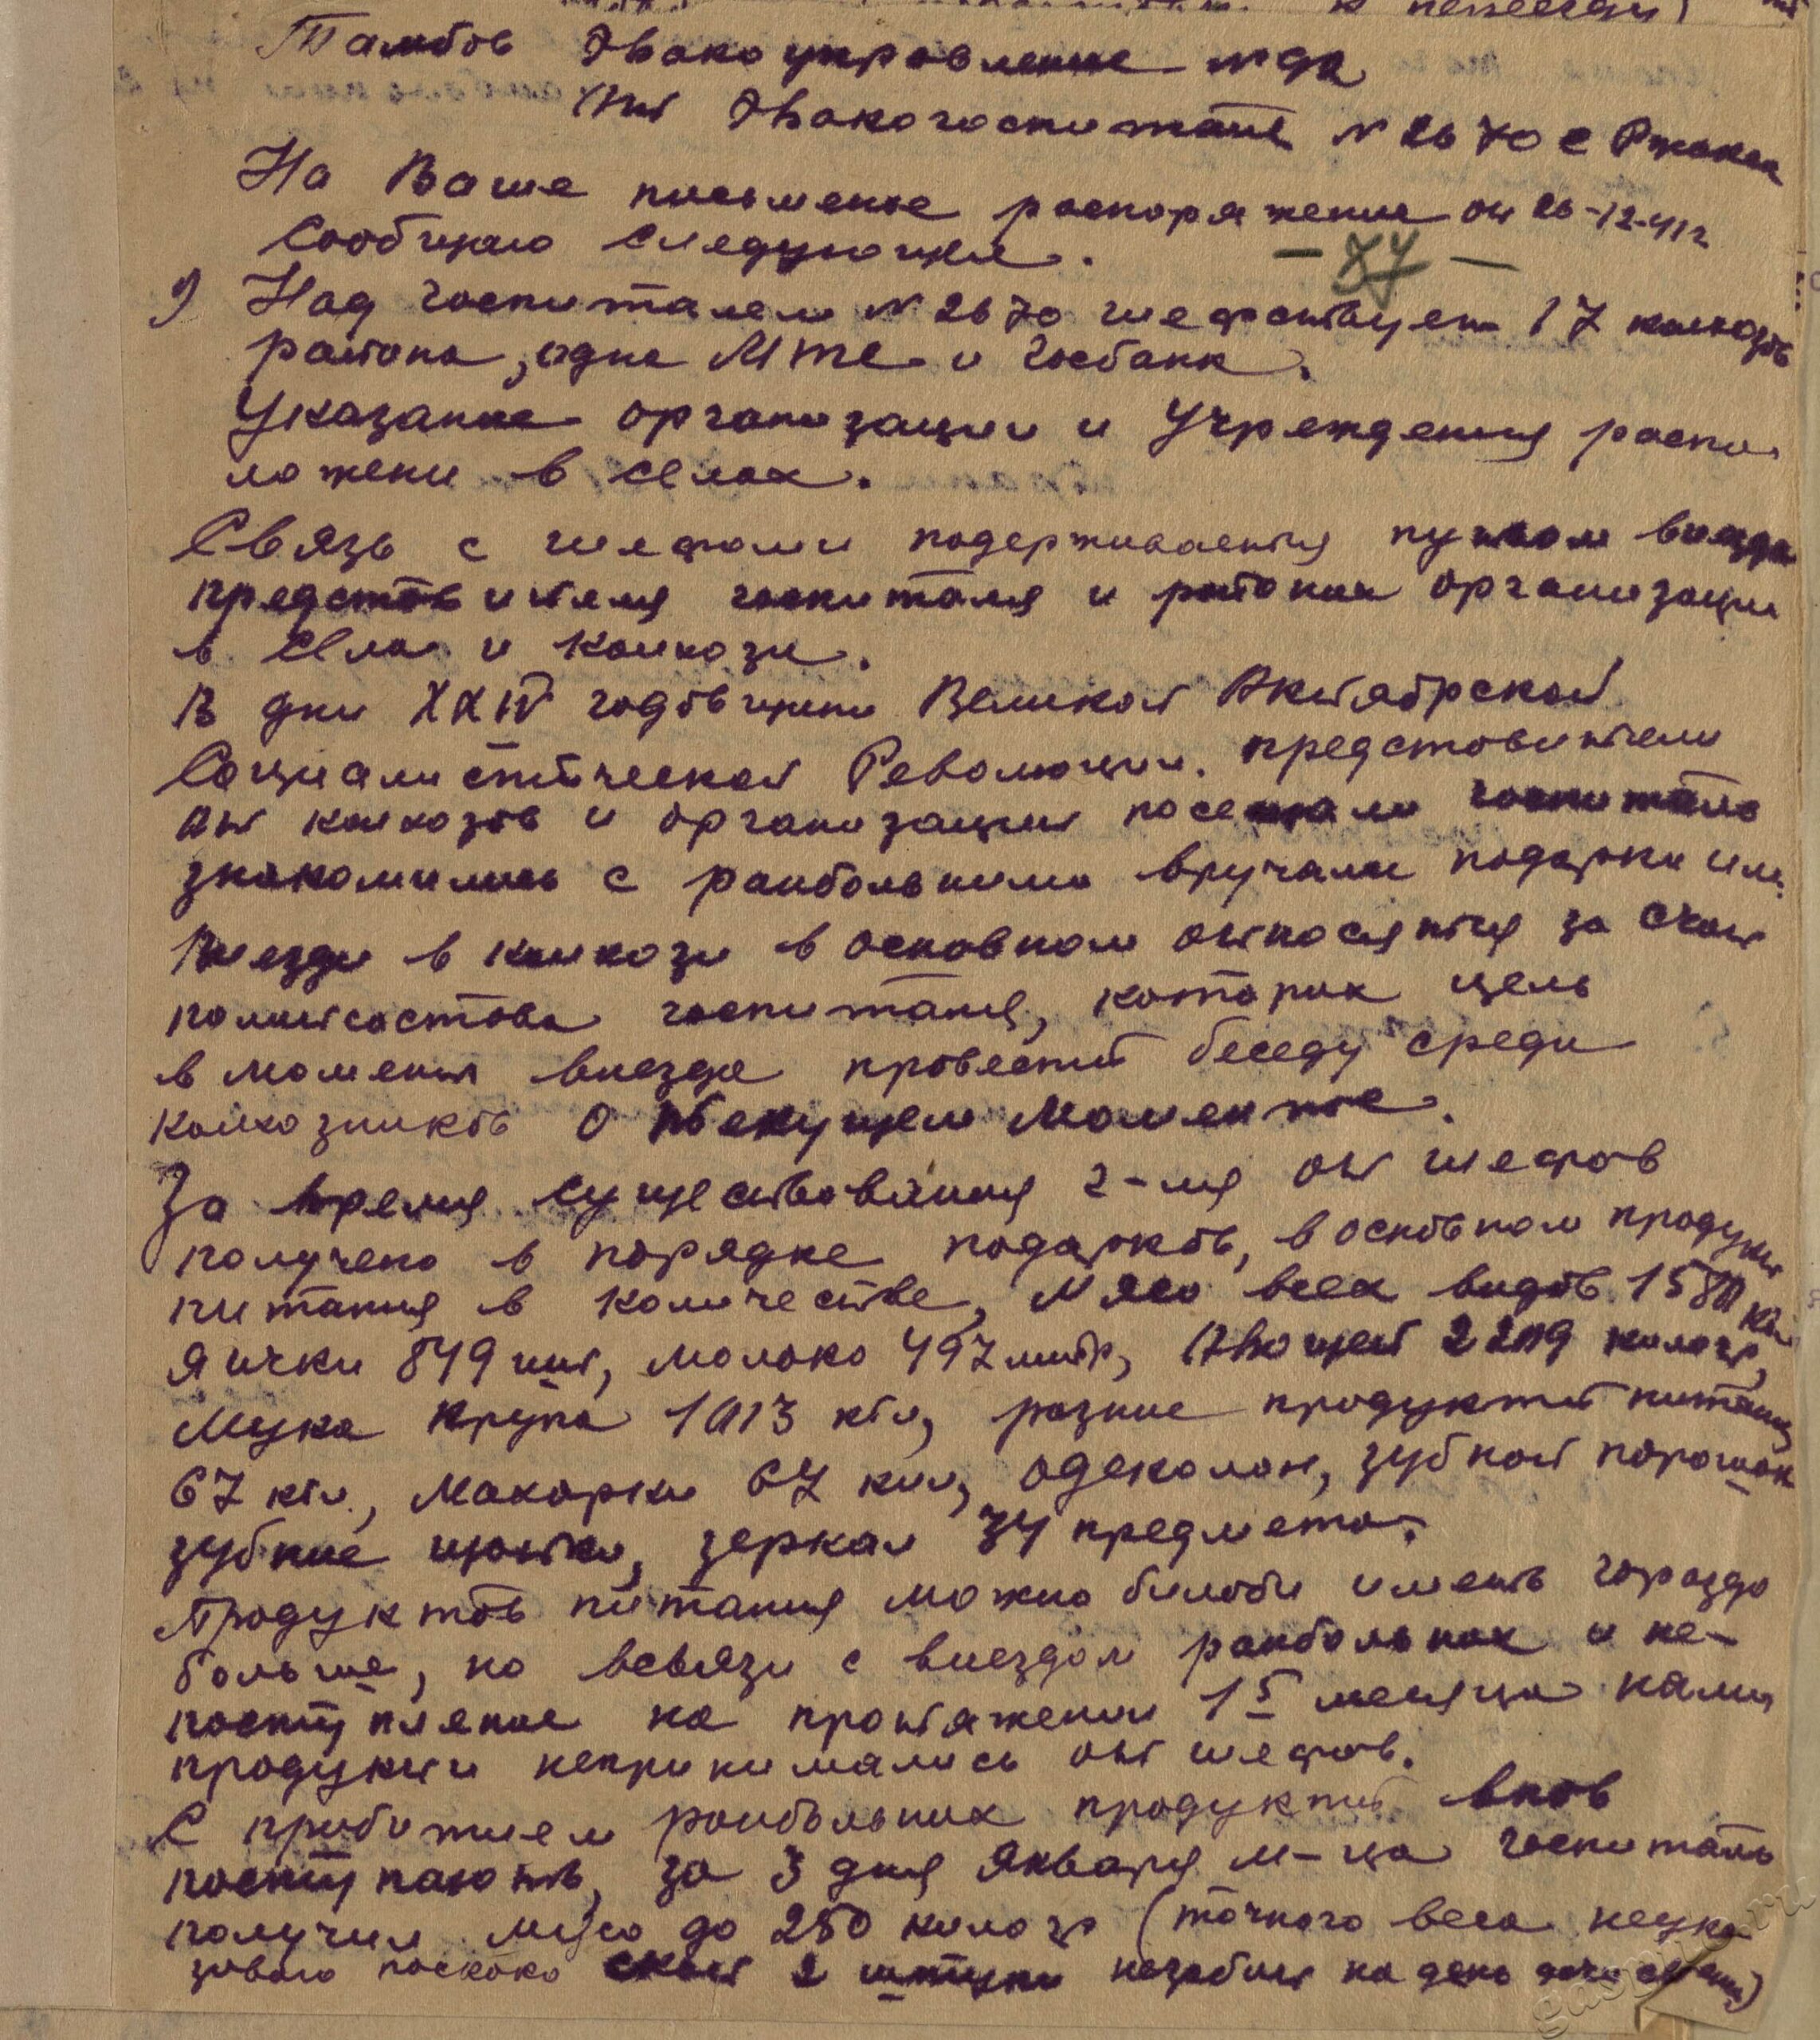 к
Тамбов Эвакоуправление
От Эвакогоспиталя N 2670 с Ржакса
На Ваше письменое распоряжение от 26-12-41г
Сообщаю следующее.
- 87 -
1) Над госпиталем N 2670 шефствует 17 колхозов
района, одна МТС и Госбанк.
Указание организации и Учреждения распо
ложени в селах.
Связь с шефами подерживается путем виезда
представителя госпиталя и районих организаци
в села и колхози.
В дни XXIV годовщини Великой Октябрской
Социалистической Революции. представители
от колхозов и организаций посещали госпиталь
знакомились с ранбольними вручали подарки им.
Виезди в колхози в основном относятся за счет
политсостава госпиталя, которих цель
в момент виезда провести беседу среди
колхозников о текущем моменте.
За время существования г-ля от шефов
получено в порядке подарков, в основном продукти
питания в количестве, Мясо всех видов 1580 кил
Яички 849 шт, молоко 497 литр, Овощей 2209 килогр,
Мука крупа 1013 кгл, разние продукти питания
67 кгл., Махорки 67 кил, одеколон, зубной порошок
зубние щетки, зеркал 34 предмета.
Продуктов питания можно билоби иметь гораздо
больше, но всвязи с виездом ранбольних и не-
поступление на протяжении 1 5 месяца нами
продукти непринимались от шефов.
С прибитием ранбольних продукти вновь
поступают, за 3 дня Января м-ца госпиталь
получил мясо до 250 килогр (точного веса неука
зиваю поскоко скот 2 штуки незабит на день донесения)